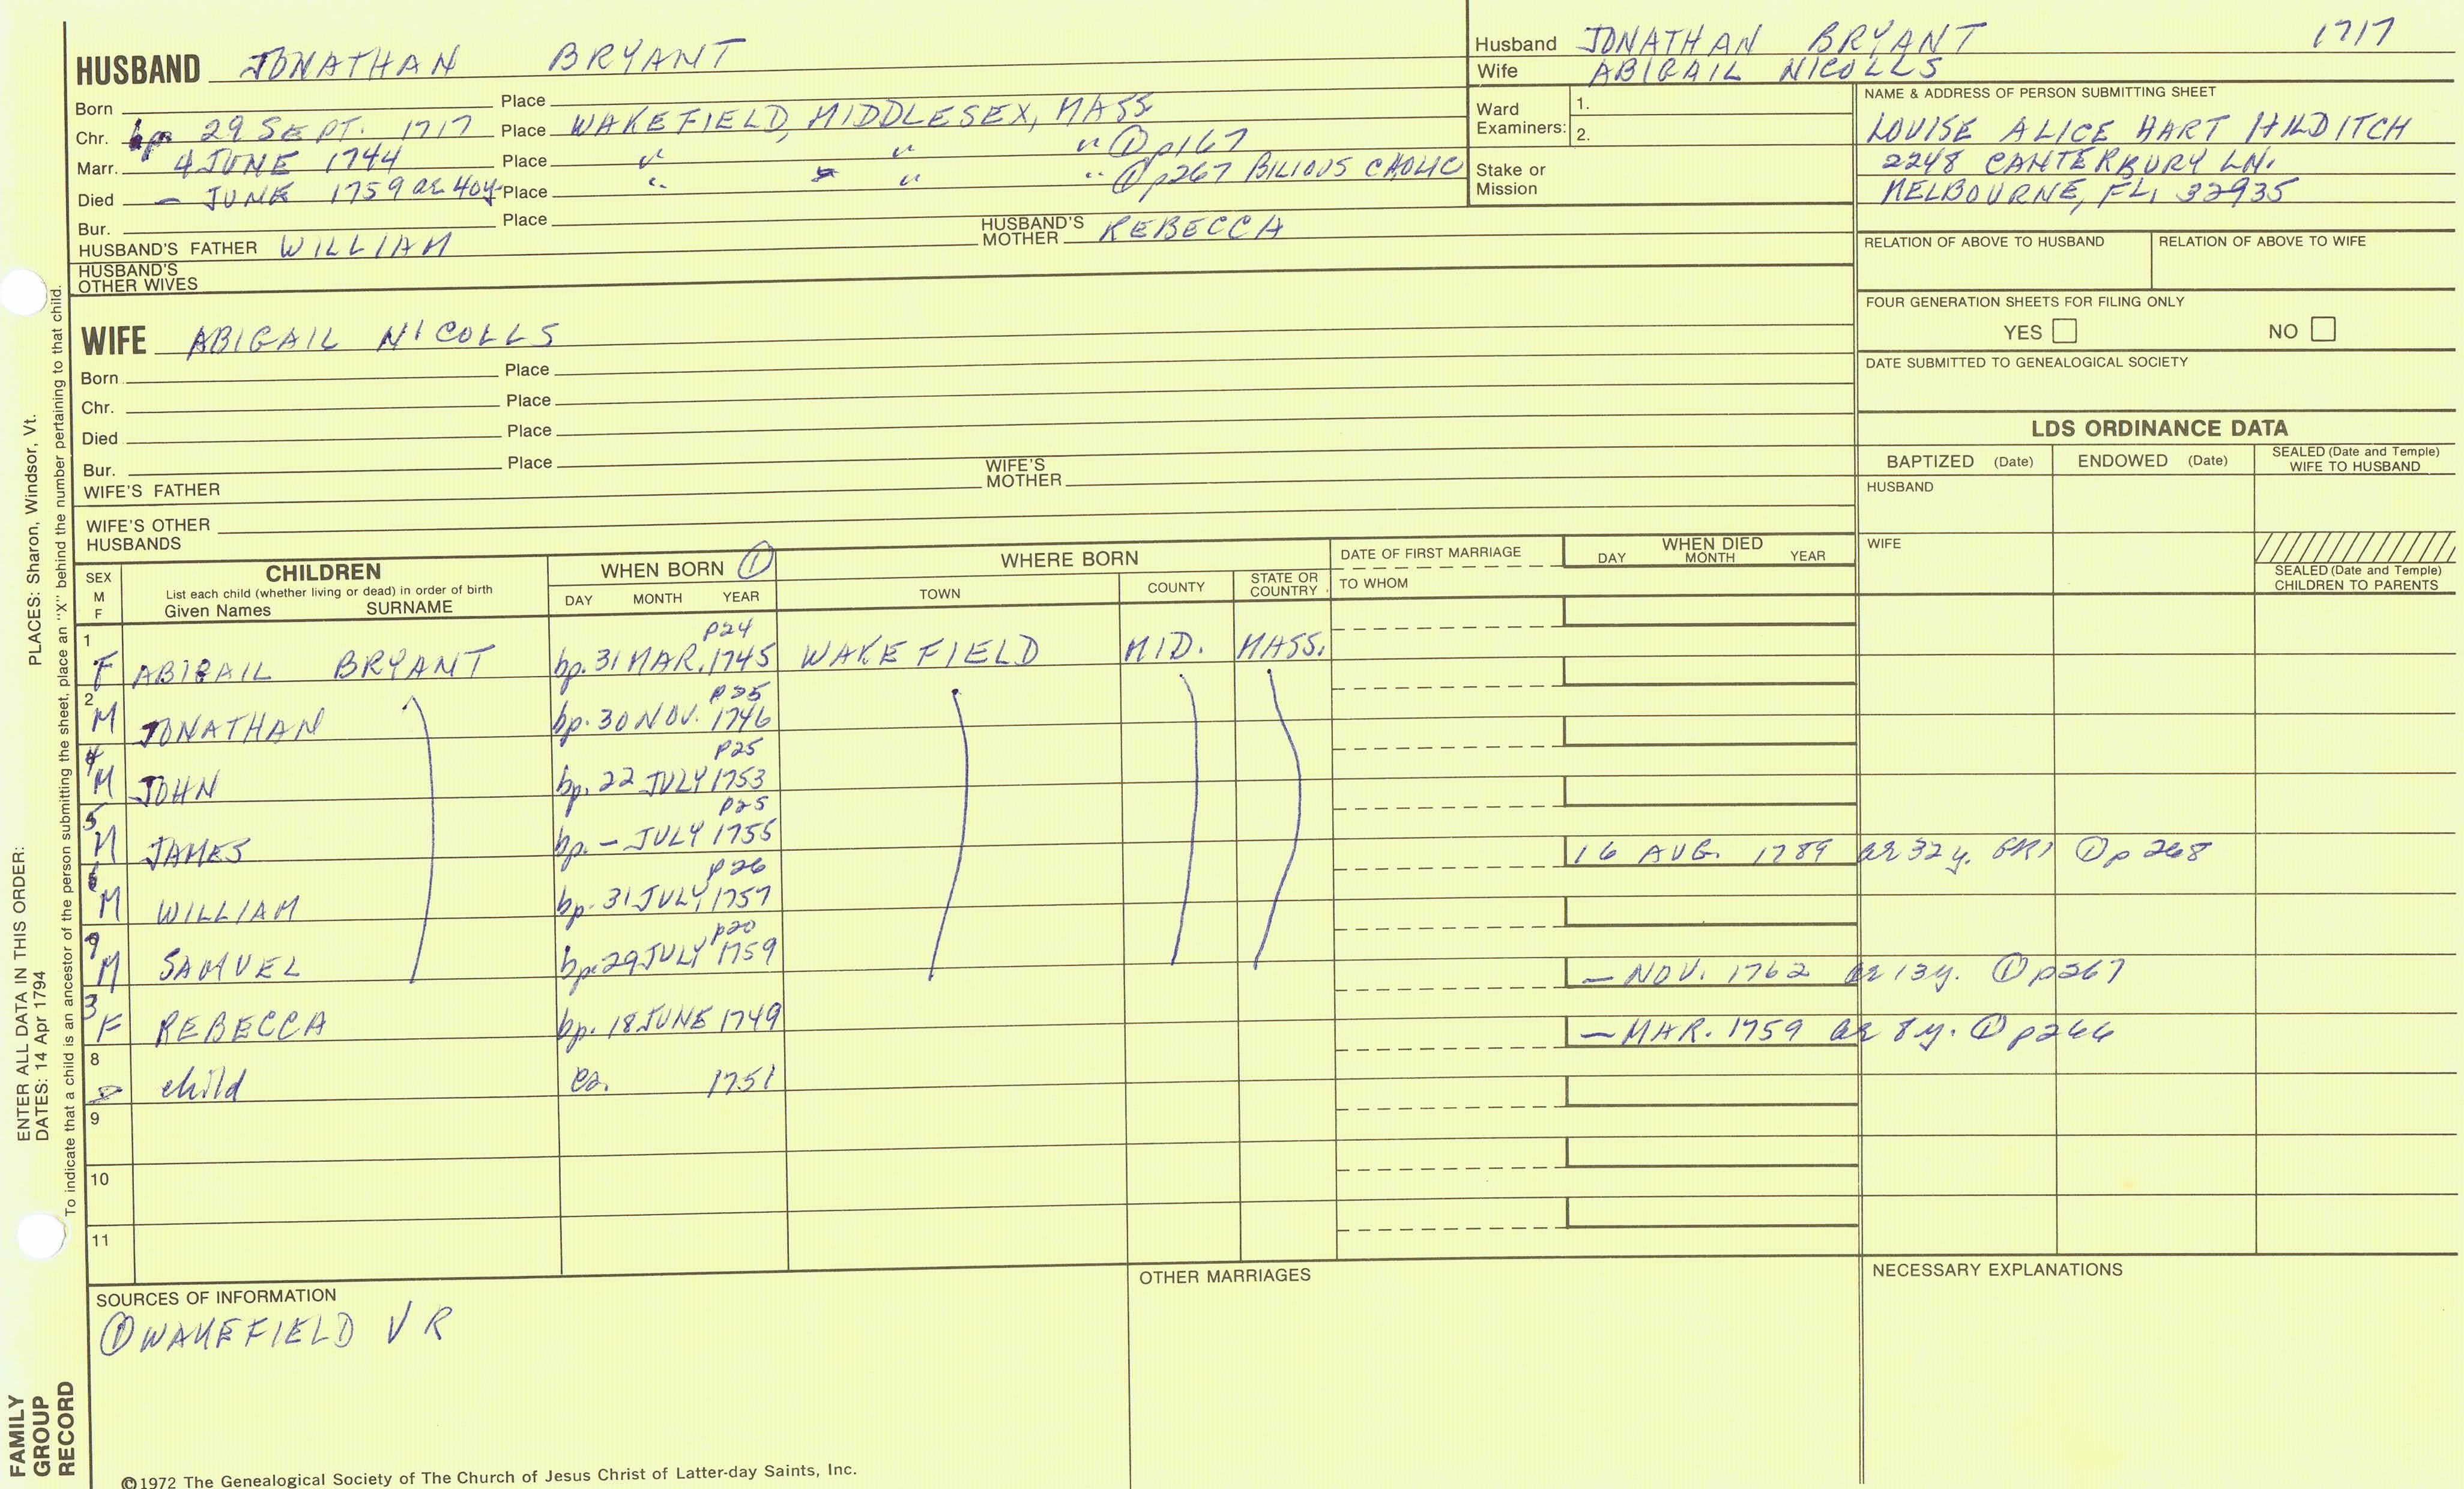 HUSBAND JONATHAN BRYANT
Born Place
Chr. bp. 29 SEPT. 1717 Place WAKEFIELD, MIDDLESEX, MASS
Marr. 4 JUNE 1744 Place " " " ① p167
Died — JUNE 1759 ae 40y. Place " " " ① p267 BILIOUS CHOLIC
Bur. Place
HUSBAND'S FATHER WILLIAM HUSBAND'S MOTHER REBECCA
HUSBAND'S OTHER WIVES
Husband JONATHAN BRYANT 1717
Wife ABIGAIL NICOLLS
Ward Examiners: 1.
2.
Stake or Mission
NAME & ADDRESS OF PERSON SUBMITTING SHEET
LOUISE ALICE HART HILDITCH
2248 CANTERBURY LN.
MELBOURNE, FL, 32935
RELATION OF ABOVE TO HUSBAND RELATION OF ABOVE TO WIFE
FOUR GENERATION SHEETS FOR FILING ONLY
YES NO
DATE SUBMITTED TO GENEALOGICAL SOCIETY
WIFE ABIGAIL NICOLLS
Born Place
Chr. Place
Died Place
Bur. Place
WIFE'S FATHER WIFE'S MOTHER
WIFE'S OTHER HUSBANDS
LDS ORDINANCE DATA
BAPTIZED (Date) ENDOWED (Date) SEALED (Date and Temple) WIFE TO HUSBAND
HUSBAND
WIFE
SEALED (Date and Temple) CHILDREN TO PARENTS
SEX M F
CHILDREN
List each child (whether living or dead) in order of birth
Given Names SURNAME
WHEN BORN ①
DAY MONTH YEAR
WHERE BORN
TOWN COUNTY STATE OR COUNTRY
DATE OF FIRST MARRIAGE
TO WHOM
WHEN DIED
DAY MONTH YEAR
1 p24
F ABIGAIL BRYANT bp. 31 MAR. 1745 WAKEFIELD MID. MASS.
2 p25
M JONATHAN bp. 30 NOV. 1746
4 p25
M JOHN bp. 22 JULY 1753
5 p25
M JAMES bp. — JULY 1755 16 AUG. 1789 ae 32y. GR1 ① p268
6 p26
M WILLIAM bp. 31 JULY, 1757
7 p20
M SAMUEL bp. 29 JULY 1759 — NOV. 1762 ae 13y. ① p267
3
F REBECCA bp. 18 JUNE 1749 — MAR. 1759 ae 8y. ① p266
8
child ca. 1751
9
10
11
SOURCES OF INFORMATION
① WAKEFIELD V R
OTHER MARRIAGES
NECESSARY EXPLANATIONS
©1972 The Genealogical Society of The Church of Jesus Christ of Latter-day Saints, Inc.
FAMILY GROUP RECORD
ENTER ALL DATA IN THIS ORDER: PLACES: Sharon, Windsor, Vt.
DATES: 14 Apr 1794
To indicate that a child is an ancestor of the person submitting the sheet, place an "X" behind the number pertaining to that child.